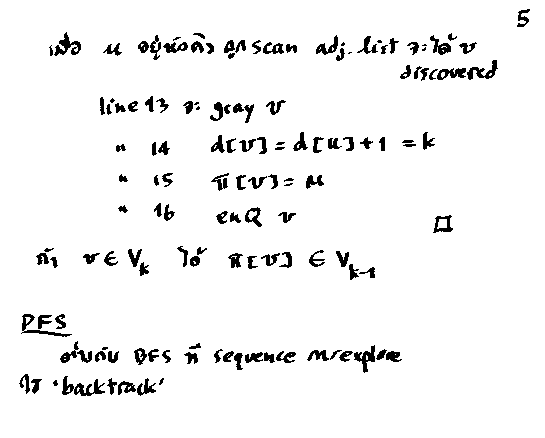 5
เมื่อ u อยู่หัวคิว ถูก scan adj. list จะได้ v
discovered
line 13 จะ gray v
" 14 d[v] = d[u]+1 = k
" 15 π[v] = u
" 16 enQ v □
ถ้า v ∈ V_k ได้ π[v] ∈ V_{k-1}
DFS
BFS ที่ sequence การ explore
ใช้ 'backtrack'